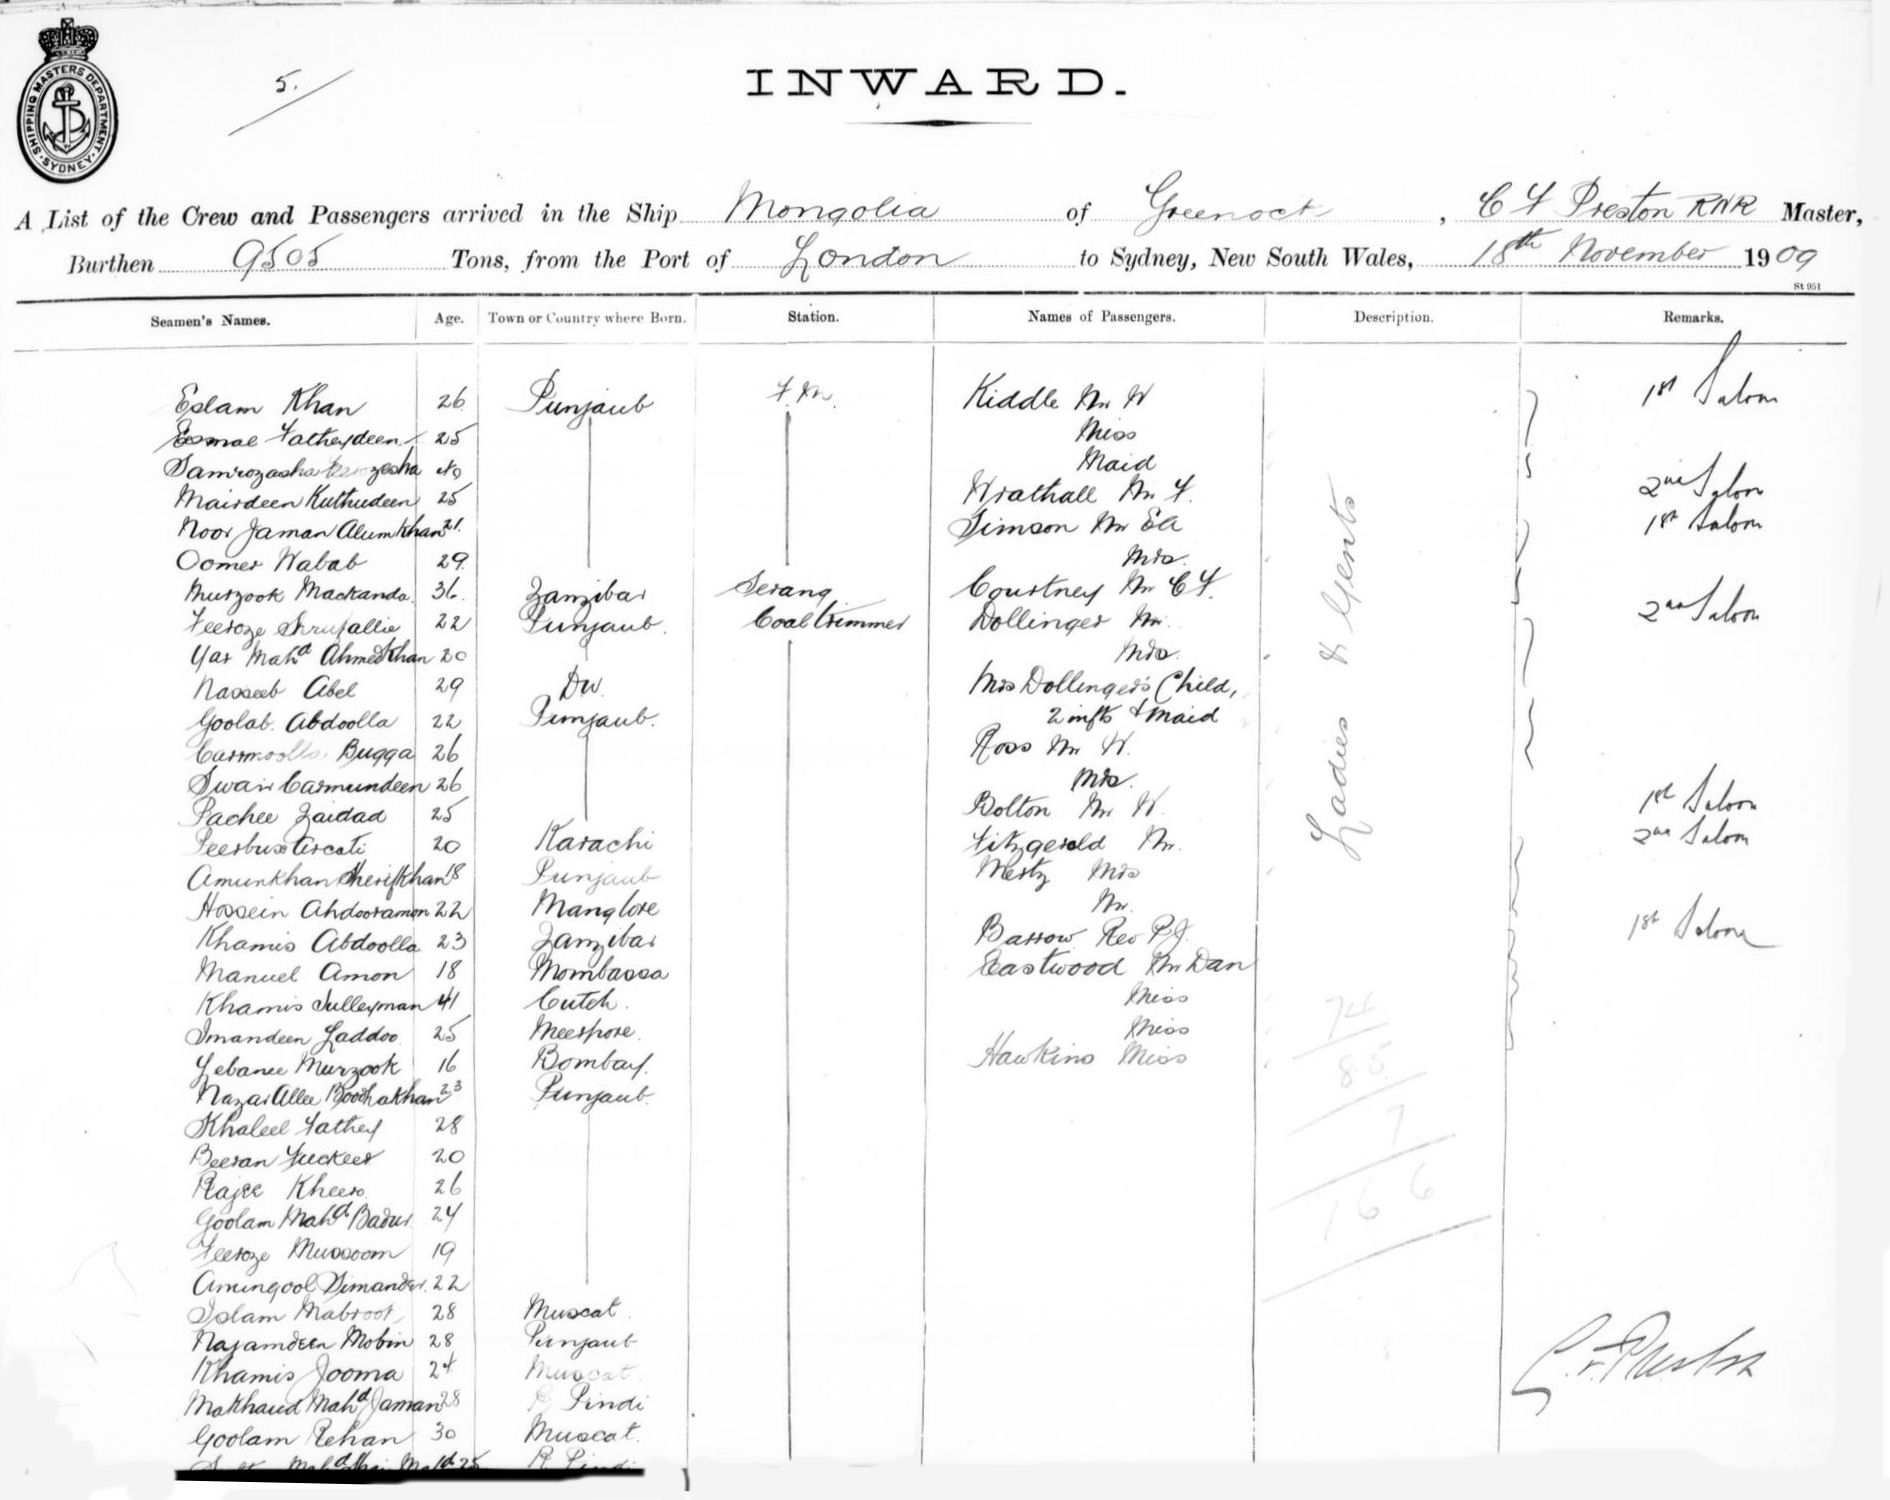 SHIPPING MASTERS DEPARTMENT. SYDNEY.
5.
INWARD.
A List of the Crew and Passengers arrived in the Ship Mongolia of Greenock, C F Preston RNR Master,
Burthen 9505 Tons, from the Port of London to Sydney, New South Wales, 18th November 1909
St 951
Seamen's Names. Age. Town or Country where Born. Station. Names of Passengers. Description. Remarks.
Eslam Khan 26 Punjaub F.M. Kiddle Mr W 1st Saloon
Esmae Fatheydeen 25 Miss
Samrozasha 40 Maid
Mairdeen Kuthudeen 25 Wrathall Mr F. 2nd Saloon
Noor Jaman Alumkhan 21. Simson Mr EA 1st Saloon
Oomer Wabab 29. Mrs.
Murzook Mackanda. 36. Zanzibar Serang Courtney Mr C F.
Feeroze Shrufallie 22 Punjaub. Coal trimmer Dollinger Mr. 2nd Saloon
Yar Mahd Ahmedkhan 20 Mrs.
Nasseeb Abel 29 Do. Mrs Dollinger's Child,
Goolab. Abdoolla 22 Punjaub. 2 infts & Maid
Bugga 26 Ross Mr W.
Swair Carmundeen 26 Mrs.
Pachee Zaidad 25 Bolton Mr W. 1st Saloon
Peerbux Arcati 20 Karachi Fitzgerald Mr. 2nd Saloon
Amunkhan Sherifkhan 18 Punjaub Mertz Mrs
Hossein Abdooramon 22 Manglore Mr.
Khamis Abdoolla 23 Zanzibar Barrow Rev P.J. 1st Saloon
Manuel Amon 18 Mombassa Eastwood Mr Dan
Khamis Sulleyman 41 Cutch. Miss
Imandeen Laddoo 25 Meerpore. Miss
Murzook 16 Bombay. Hawkins Miss
Nazar Allee Boodhakhan 23 Punjaub.
Khaleel Fathey 28
Beeran Fuckeer 20
Rajee Kheero. 26
Goolam Mahd Badur. 24
Feeroze Mussoom 19
Amingool Simandar. 22
Islam Mabroot 28 Muscat.
Najamdeen Mobin 28 Punjaub
Khamis Jooma 24 Muscat.
Makhaud Mahd Jaman 28 R Pindi
Goolam Rehan 30 Muscat.
Mahd Mahd 25 R Pindi
Ladies & Gents
74
85
7
166
C.F. Preston